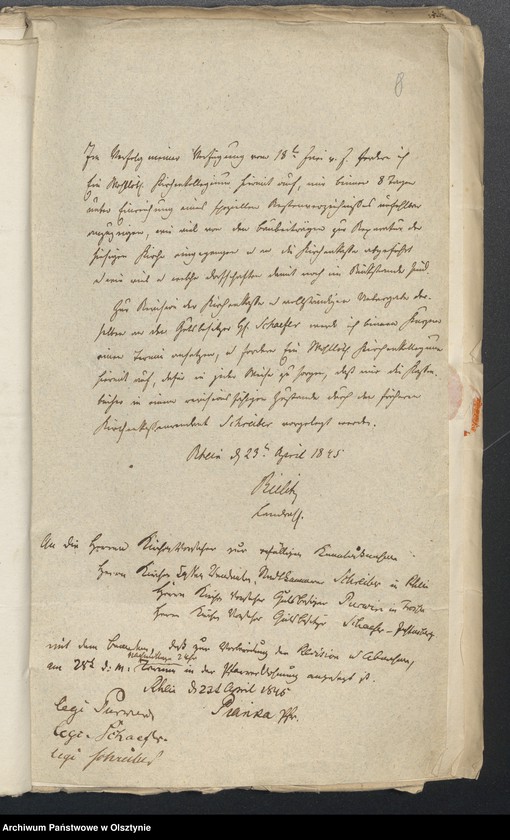 8
Im Verfolg meiner Verfügung vom 18ten Juni v. J. fordere ich
Ein Wohllöbl. Kirchenkollegium hiermit auf, mir binnen 8 Tagen
unter Einreichung eines speziellen Restenverzeichnisses
anzuzeigen, wie viel von den Baubeiträgen zur Reparatur der
hiesigen Kirche eingegangen u an die Kirchenkasse abgeführt
u wie viel u welche Ortschaften damit noch im Rückstande sind.
Zur Revision der Kirchenkasse u vollständigen Uebergabe der-
selben an den Gutsbesitzer H. Schaefer werde ich binnen Kurzem
einen Termin ansetzen, u fordere Ein Wohllöbl. Kirchenkollegium
hiermit auf, dafür in jeder Weise zu sorgen, daß mir die Kassen-
bücher in einem revisionsfähigen Zustande durch den früheren
Kirchenkassenrendant Schreiber vorgelegt werden.
Rhein d 23ten April 1845
Landrath.
An die Herren Kirchenvorsteher zur gefälligen Kenntnißnahme
Herrn Schreiber in Rhein
Herrn Kirchen Vorsteher Gutsbesitzer Purwin in
Herrn Kirchen Vorsteher Gutsbesitzer Schaefer
mit dem Bemerken, daß zur Revision u Abnahme,
am 28t d. M. Nachmittags 2 Uhr Termin in der Pfarrwohnung angesetzt ist.
Rhein d April 1845
legi Purwin Pianka Pfr.
legi Schaefer.
legi Schreiber
Archiwum Państwowe w Olsztynie